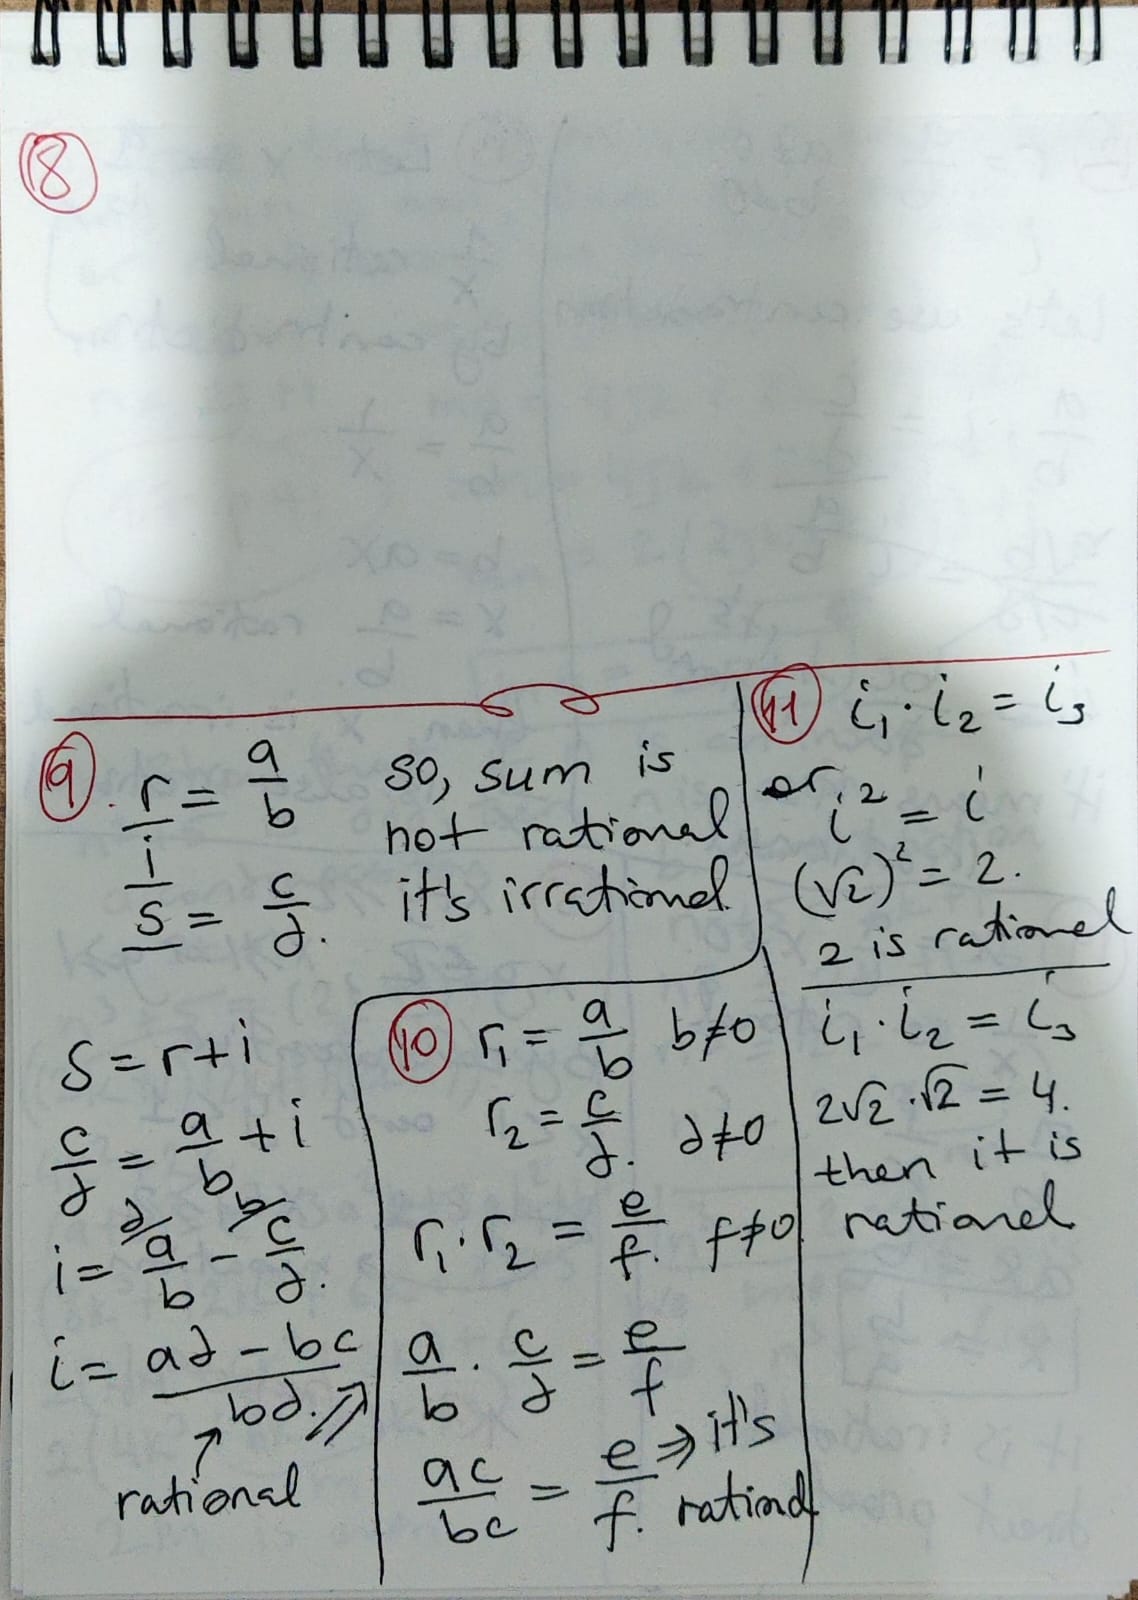 8
9. r = a/b
i
s = c/d.
so, sum is
not rational
it's irrational.
s = r + i
c/d = a/b + i
i = a/b - c/d.
i = ad - bc / bd. ⇒
↑
rational
10 r₁ = a/b b≠0
r₂ = c/d. d≠0
r₁·r₂ = e/f. f≠0.
a/b · c/d = e/f
ac/bc = e/f. ⇒ it's
rational
11 i₁·i₂ = i₃
or, i² = i
(√2)² = 2.
2 is rational
i₁·i₂ = i₃
2√2·√2 = 4.
then it is
rational